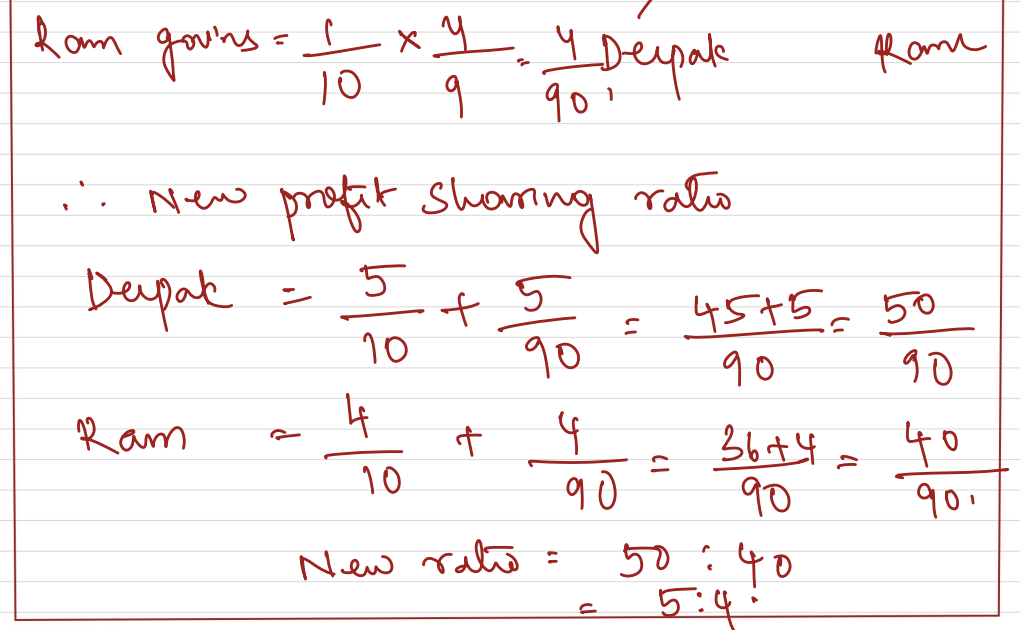 Ram gains = 1/10 × 4/9 = 4/90. Deepak Ram
∴ New profit sharing ratio
Deepak = 5/10 + 5/90 = 45+5/90 = 50/90
Ram = 4/10 + 4/90 = 36+4/90 = 40/90.
New ratio = 50 : 40
= 5:4.